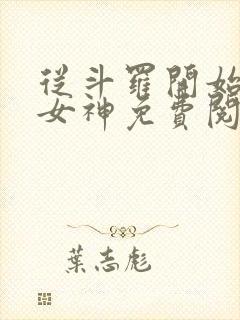 從斗羅開始
女神免費閱
葉志彪